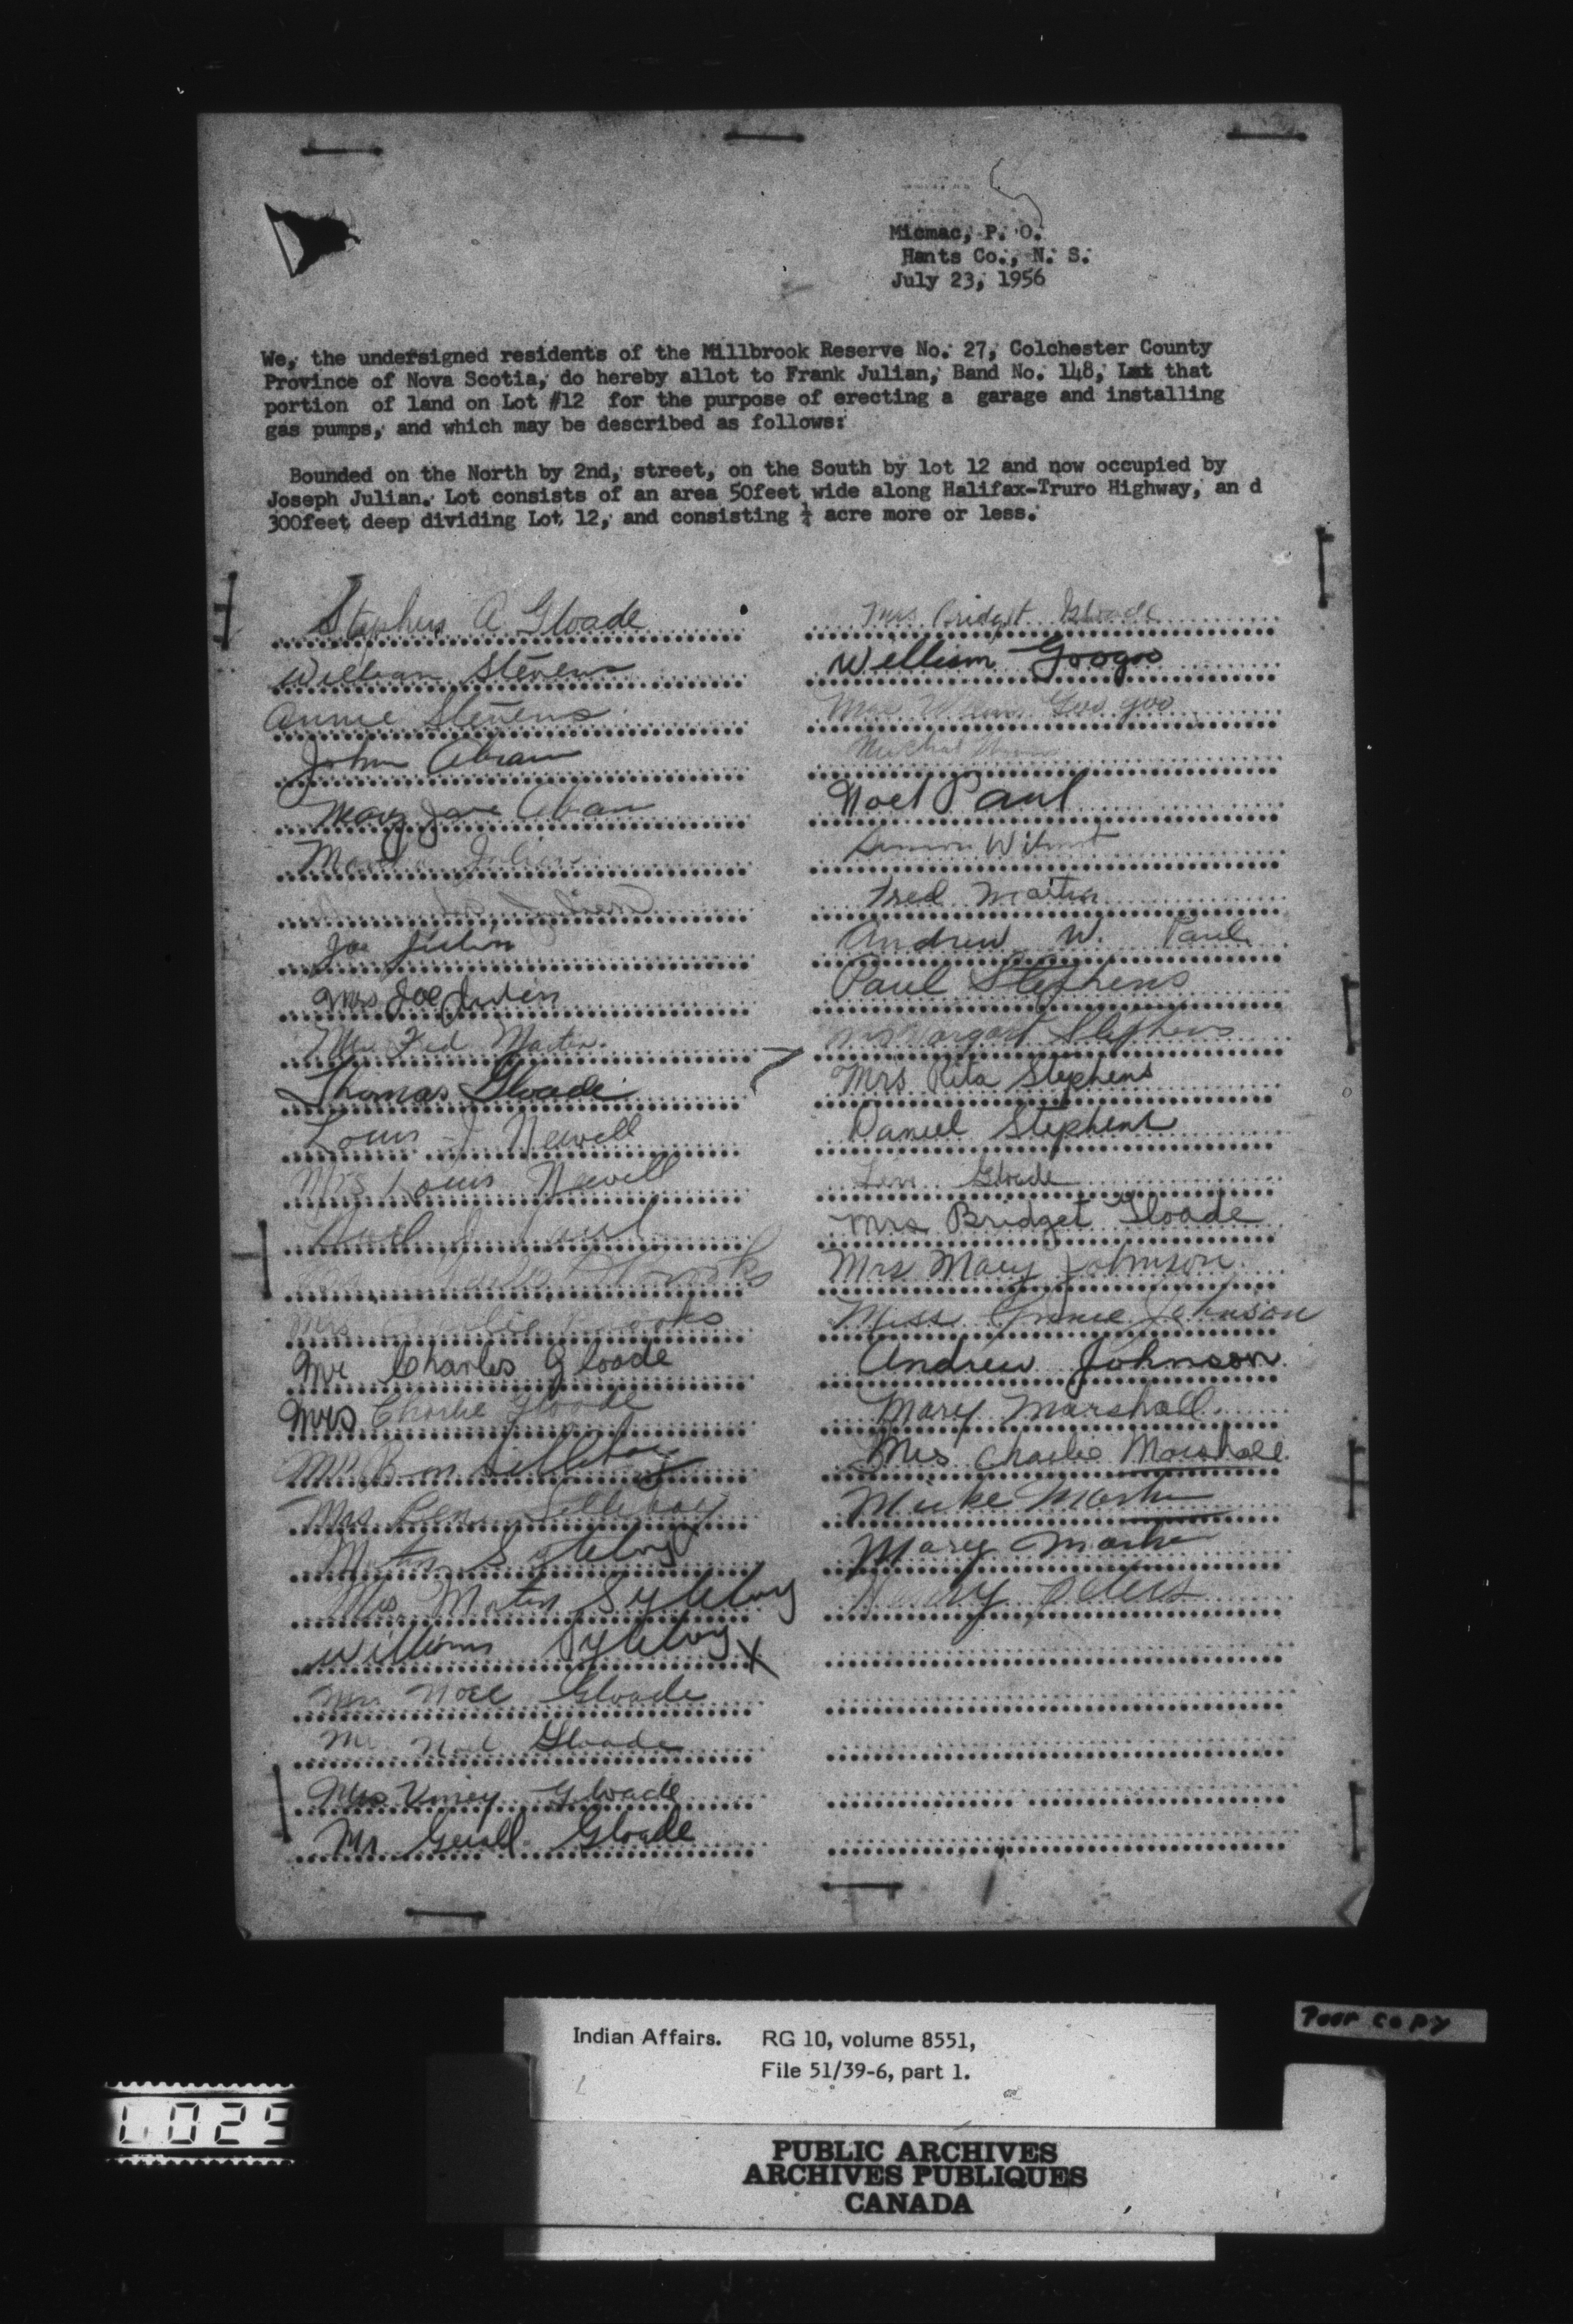 Micmac, P. O.
Hants Co., N. S.
July 23, 1956
We, the undersigned residents of the Millbrook Reserve No. 27, Colchester County
Province of Nova Scotia, do hereby allot to Frank Julian, Band No. 148, that
portion of land on Lot #12 for the purpose of erecting a garage and installing
gas pumps, and which may be described as follows:
Bounded on the North by 2nd, street, on the South by lot 12 and now occupied by
Joseph Julian. Lot consists of an area 50feet wide along Halifax-Truro Highway, an d
300feet deep dividing Lot 12, and consisting acre more or less.
Stephen A Gloade
William Stevens
Annie Stevens
John Abram
Mary Jane Abram
Julian
Joe Julian
Mrs Joe Julien
Fred Martin
Thomas Gloade
Louis J Newell
Mrs Louis Newell
Noel Paul
Brooks
Mrs Charlie Brooks
Mr Charles Gloade
Mrs Charlie Gloade
Mr Ben Silleboy
Mrs Ben Silleboy
Martin Sylliboy
Mrs Martin Sylliboy
William Sylliboy X
Mrs Noel Gloade
Mr Noel Gloade
Mrs Gloade
Mr Gloade
Mrs Bridget Gloade
William Googoo
Googoo
Michal
Noel Paul
Simon Wilmot
Fred Martin
Andrew W. Paul
Paul Stephens
Mrs Margaret Stephens
Mrs Rita Stephens
Daniel Stephens
Gloade
Mrs Bridget Gloade
Mrs Mary Johnson
Miss Johnson
Andrew Johnson
Mary Marshall
Mrs Charlie Marshall
Mike Martin
Mary Martin
Peters
Indian Affairs. RG 10, volume 8551,
File 51/39-6, part 1.
Poor copy
PUBLIC ARCHIVES
ARCHIVES PUBLIQUES
CANADA